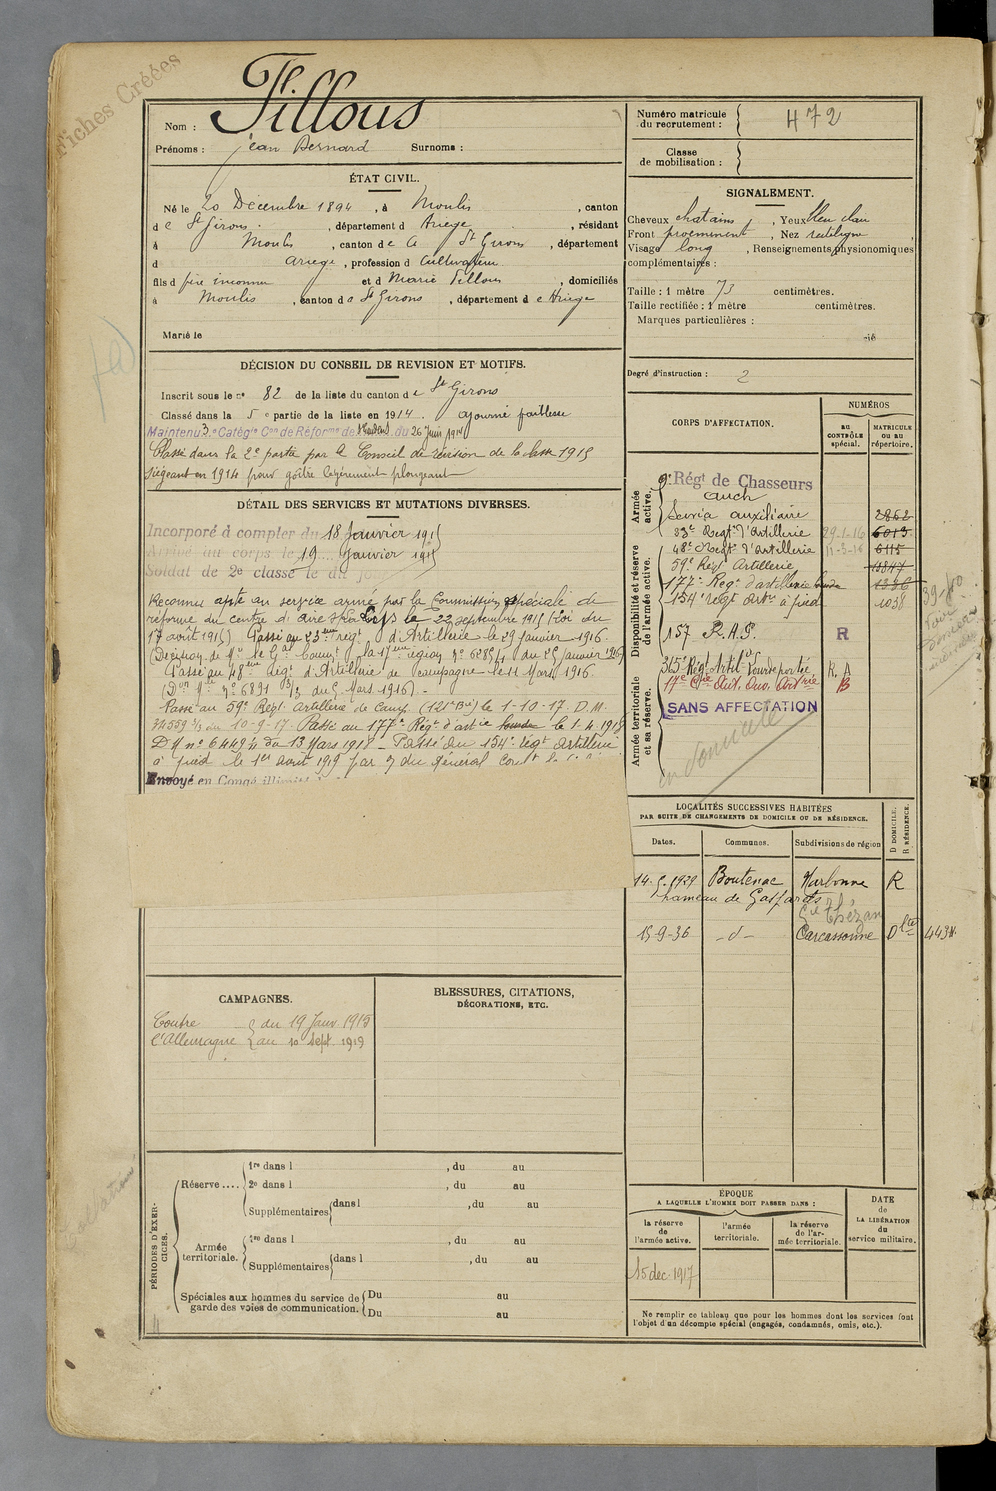 Fiches Créées
Tillous
Nom :
Prénoms : Jean Bernard Surnoms :
ÉTAT CIVIL.
Né le 20 Décembre 1894, à Moulis, canton
de St Girons, département d Ariege, résidant
à Moulis, canton de St Girons, département
d ariege, profession d Cultivateur
fils d père inconnu et d Marie Tillous, domiciliés
à Moulis, canton de St Girons, département de Ariege
Marié le
DÉCISION DU CONSEIL DE REVISION ET MOTIFS.
Inscrit sous le n° 82 de la liste du canton de St Girons
Classé dans la 5e partie de la liste en 1914. ajourné faiblesse
Maintenu 3e Catégie Con de Réforme de du 26 Juin 19
Classé dans la 2e partie par le Conseil de révision de la classe 1915
siégeant en 1914 pour goître légèrement plongeant
DÉTAIL DES SERVICES ET MUTATIONS DIVERSES.
Incorporé à compter du 18 Janvier 1915
Arrivé au corps le 19 Janvier 1915
Soldat de 2e classe le dit jour
Reconnu apte au service armé par la Commission spéciale de
réforme du centre d'aire le 22 septembre 1915 (Loi du
17 août 1915) Passé au 23eme régt d'Artillerie le 29 janvier 1916
(Decision de Mr le Gal Commt la 17eme région n° 6285 du 25 Janvier 1916)
Passé au 48eme Régt d'Artillerie de Campagne le 11 Mars 1916.
(Don Mlle n° 6891 3/3 du 5 Mars 1916) -
Passé au 59e Régt artillerie de Camp (121e Bie) le 1-10-17. D.M.
34559 3/3 du 10-9-17. Passé au 177e Régt d'artie lourde le 1.4.1918
D M n° 6449 du 13 Mars 1918 - Passé au 154e régt Artillerie
à pied le 1er août 1919 par du général
Envoyé en Congé illimité
CAMPAGNES.
Contre l'Allemagne { du 19 Janv. 1915
au 10 Sept 1919
BLESSURES, CITATIONS,
DÉCORATIONS, ETC.
PÉRIODES D'EXERCICES.
Réserve ....
1re dans l , du au
2e dans l , du au
Supplémentaires dans l , du au
Armée territoriale.
1re dans l , du au
Supplémentaires dans l , du au
Spéciales aux hommes du service de garde des voies de communication.
Du au
Du au
Numéro matricule du recrutement : 472
Classe de mobilisation :
SIGNALEMENT.
Cheveux chatains, Yeux bleu clair
Front proéminent, Nez rectiligne
Visage long, Renseignements physionomiques
complémentaires :
Taille : 1 mètre 73 centimètres.
Taille rectifiée : 1 mètre centimètres.
Marques particulières :
Degré d'instruction : 2
CORPS D'AFFECTATION.
NUMÉROS
au CONTRÔLE spécial.
MATRICULE ou au répertoire.
Armée active.
Disponibilité et réserve de l'armée active.
Armée territoriale et sa réserve.
9e Régt de Chasseurs
auch
Service auxiliaire 2862
23e Regt d'Artillerie 29-1-16 6013
48e Regt d'Artillerie 11-3-16 6115
59e Regt Artillerie
177e Regt d'artillerie lourde 1336
154e régt Artie à pied 1038
157 R.A.P. R
315e Régt Artil Lourde portée R. A
17e Cie Aut. Ouv. Artrie B
SANS AFFECTATION
en domicile
LOCALITÉS SUCCESSIVES HABITÉES
PAR SUITE DE CHANGEMENTS DE DOMICILE OU DE RÉSIDENCE.
Dates. Communes. Subdivisions de région
D DOMICILE.
R RÉSIDENCE.
14.5.1929 Boutenac Narbonne R
hameau de Gasparets
Thézan
15-9-36 -d- Carcassonne Dlte 4434
ÉPOQUE
A LAQUELLE L'HOMME DOIT PASSER DANS :
la réserve de l'armée active.
l'armée territoriale.
la réserve de l'armée territoriale.
DATE de LA LIBÉRATION du service militaire.
15 dec. 1917
Ne remplir ce tableau que pour les hommes dont les services font
l'objet d'un décompte spécial (engagés, condamnés, omis, etc.).